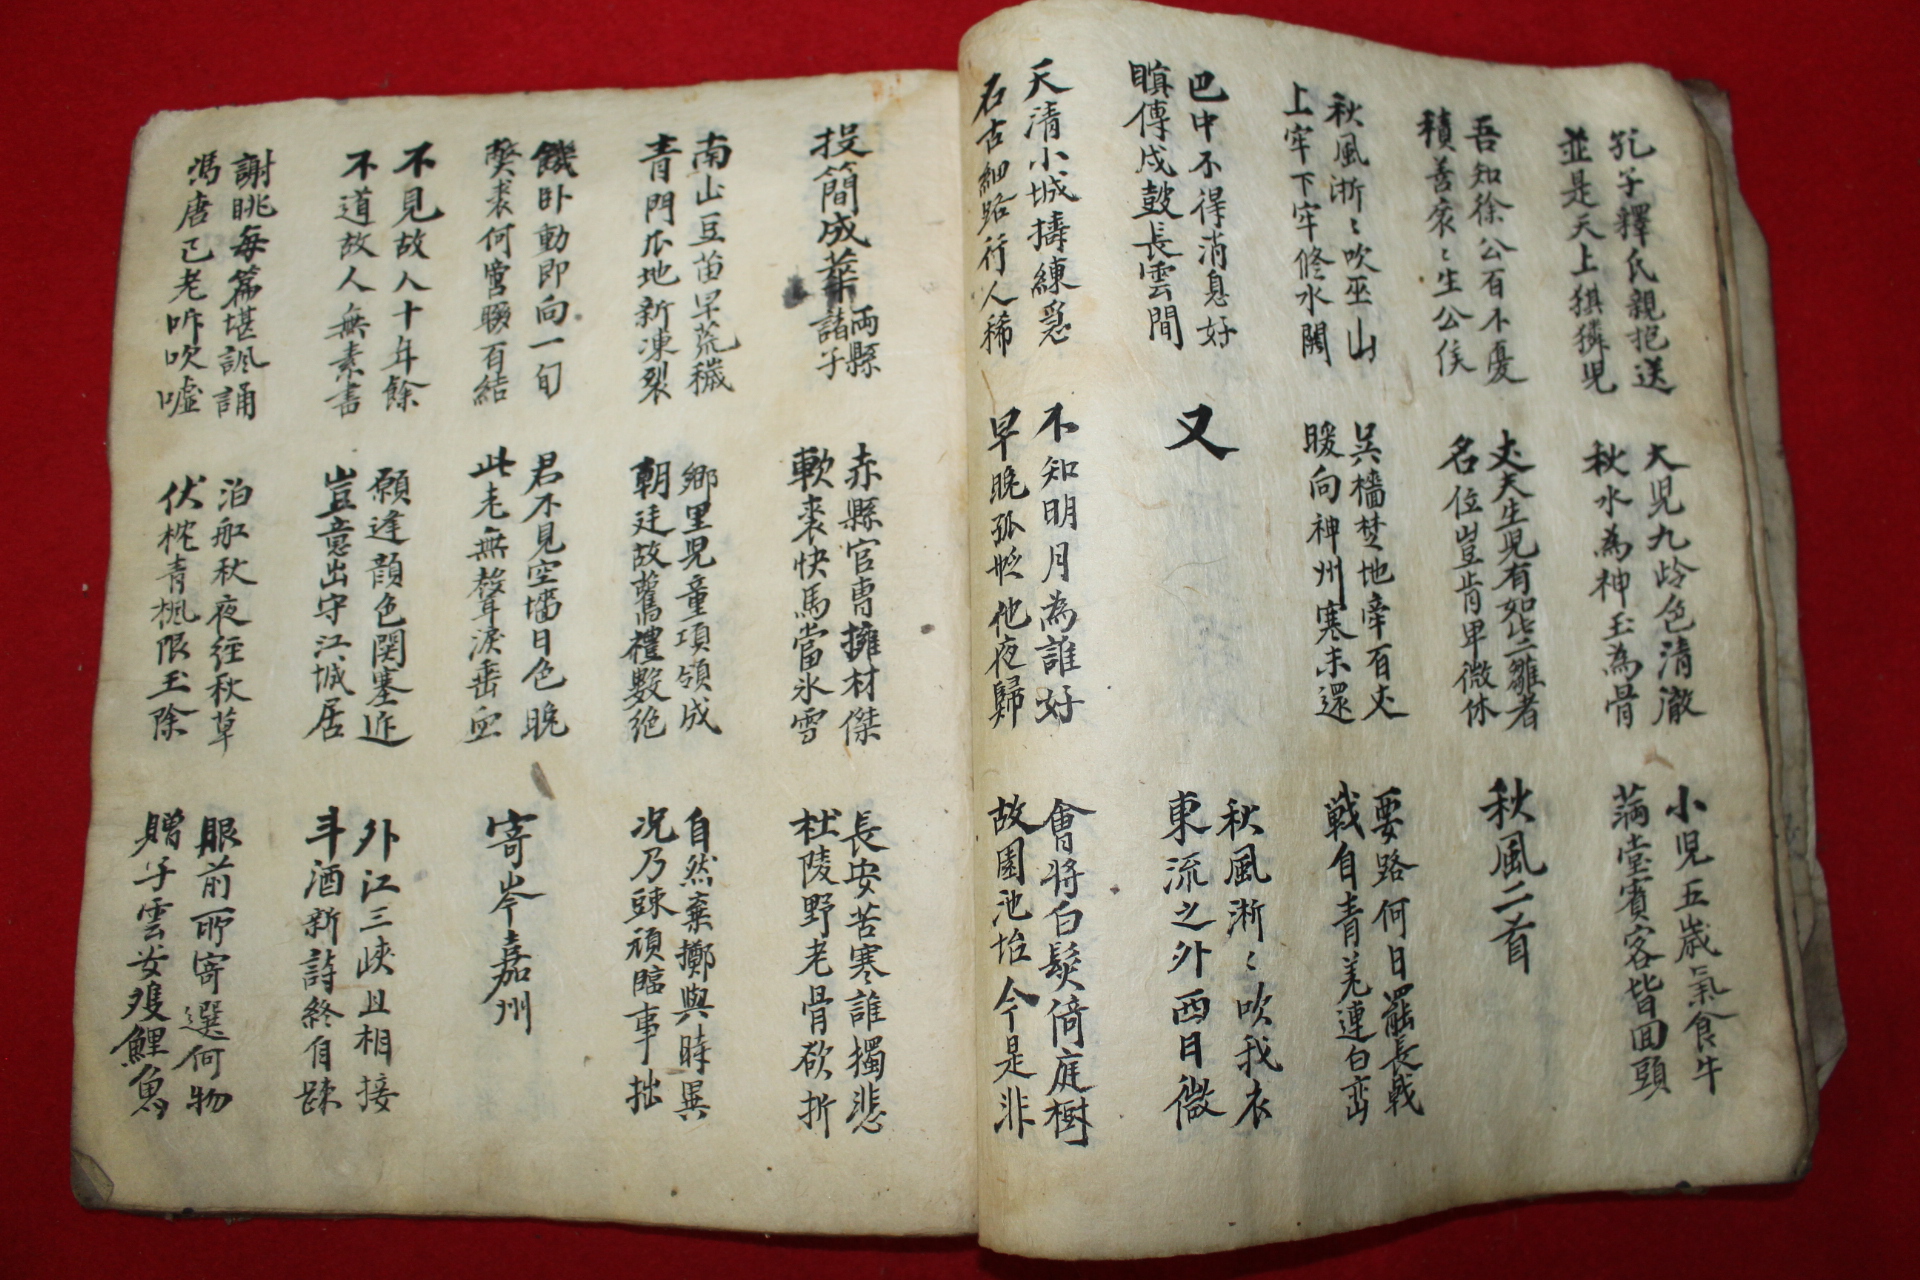 孔子釋氏親抱送
並是天上猉獜兒
大兒九岭色清澈
秋水為神玉為骨
小兒五歲氣食牛
滿堂賓客皆回頭
吾知徐公百不憂
積善袞〻生公侯
丈夫生兒有如此二雛者
名位豈肯卑微休
秋風二首
秋風淅〻吹巫山
上牢下牢修水關
吳檣楚地牽百丈
暖向神州寒未還
要路何日罷長戟
戰自青羌連白蛮
巴中不得消息好
瞋傳戍鼓長雲間
又
秋風淅〻吹我衣
東流之外西日微
天清小城擣練急
石古細路行人稀
不知明月為誰好
早晚孤帆他夜歸
會將白髮倚庭樹
故園池坮今是非
投簡成華兩縣諸子
赤縣官曹擁材傑
軟裘快馬當氷雪
長安苦寒誰獨悲
杜陵野老骨欲折
南山豆苗早荒穢
青門瓜地新凍裂
鄉里兒童項領成
朝廷故舊禮數絶
自然棄擲與時異
况乃踈頑臨事拙
饑卧動即向一旬
弊裘何啻聯百結
君不見空墻日色晚
此老無聲淚垂血
寄岑嘉州
不見故人十年餘
不道故人無素書
願逢顔色関塞近
豈意出守江城居
外江三峽且相接
斗酒新詩終自踈
謝眺每篇堪諷誦
馮唐已老听吹噓
泊舡秋夜經秋草
伏枕青楓限玉除
眼前所寄選何物
贈子雲安雙鯉魚